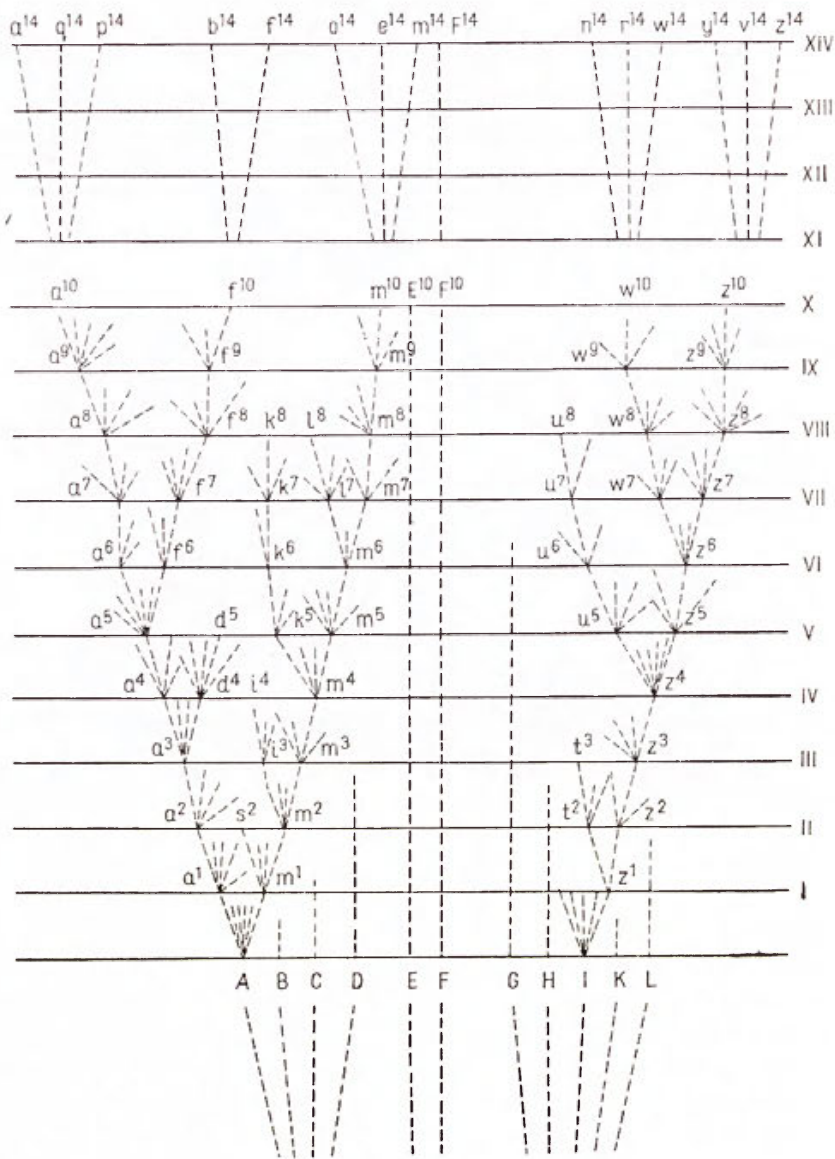 a¹⁴ q¹⁴ p¹⁴ b¹⁴ f¹⁴ o¹⁴ e¹⁴ m¹⁴ F¹⁴ n¹⁴ r¹⁴ w¹⁴ y¹⁴ v¹⁴ z¹⁴
XIV
XIII
XII
XI
a¹⁰ f¹⁰ m¹⁰ E¹⁰ F¹⁰ w¹⁰ z¹⁰
X
a⁹ f⁹ m⁹ w⁹ z⁹
IX
a⁸ f⁸ k⁸ l⁸ m⁸ u⁸ w⁸ z⁸
VIII
a⁷ f⁷ k⁷ l⁷ m⁷ u⁷ w⁷ z⁷
VII
a⁶ f⁶ k⁶ m⁶ u⁶ z⁶
VI
a⁵ d⁵ k⁵ m⁵ u⁵ z⁵
V
a⁴ d⁴ i⁴ m⁴ z⁴
IV
a³ i³ m³ t³ z³
III
a² s² m² t² z²
II
a¹ m¹ z¹
I
A B C D E F G H I K L